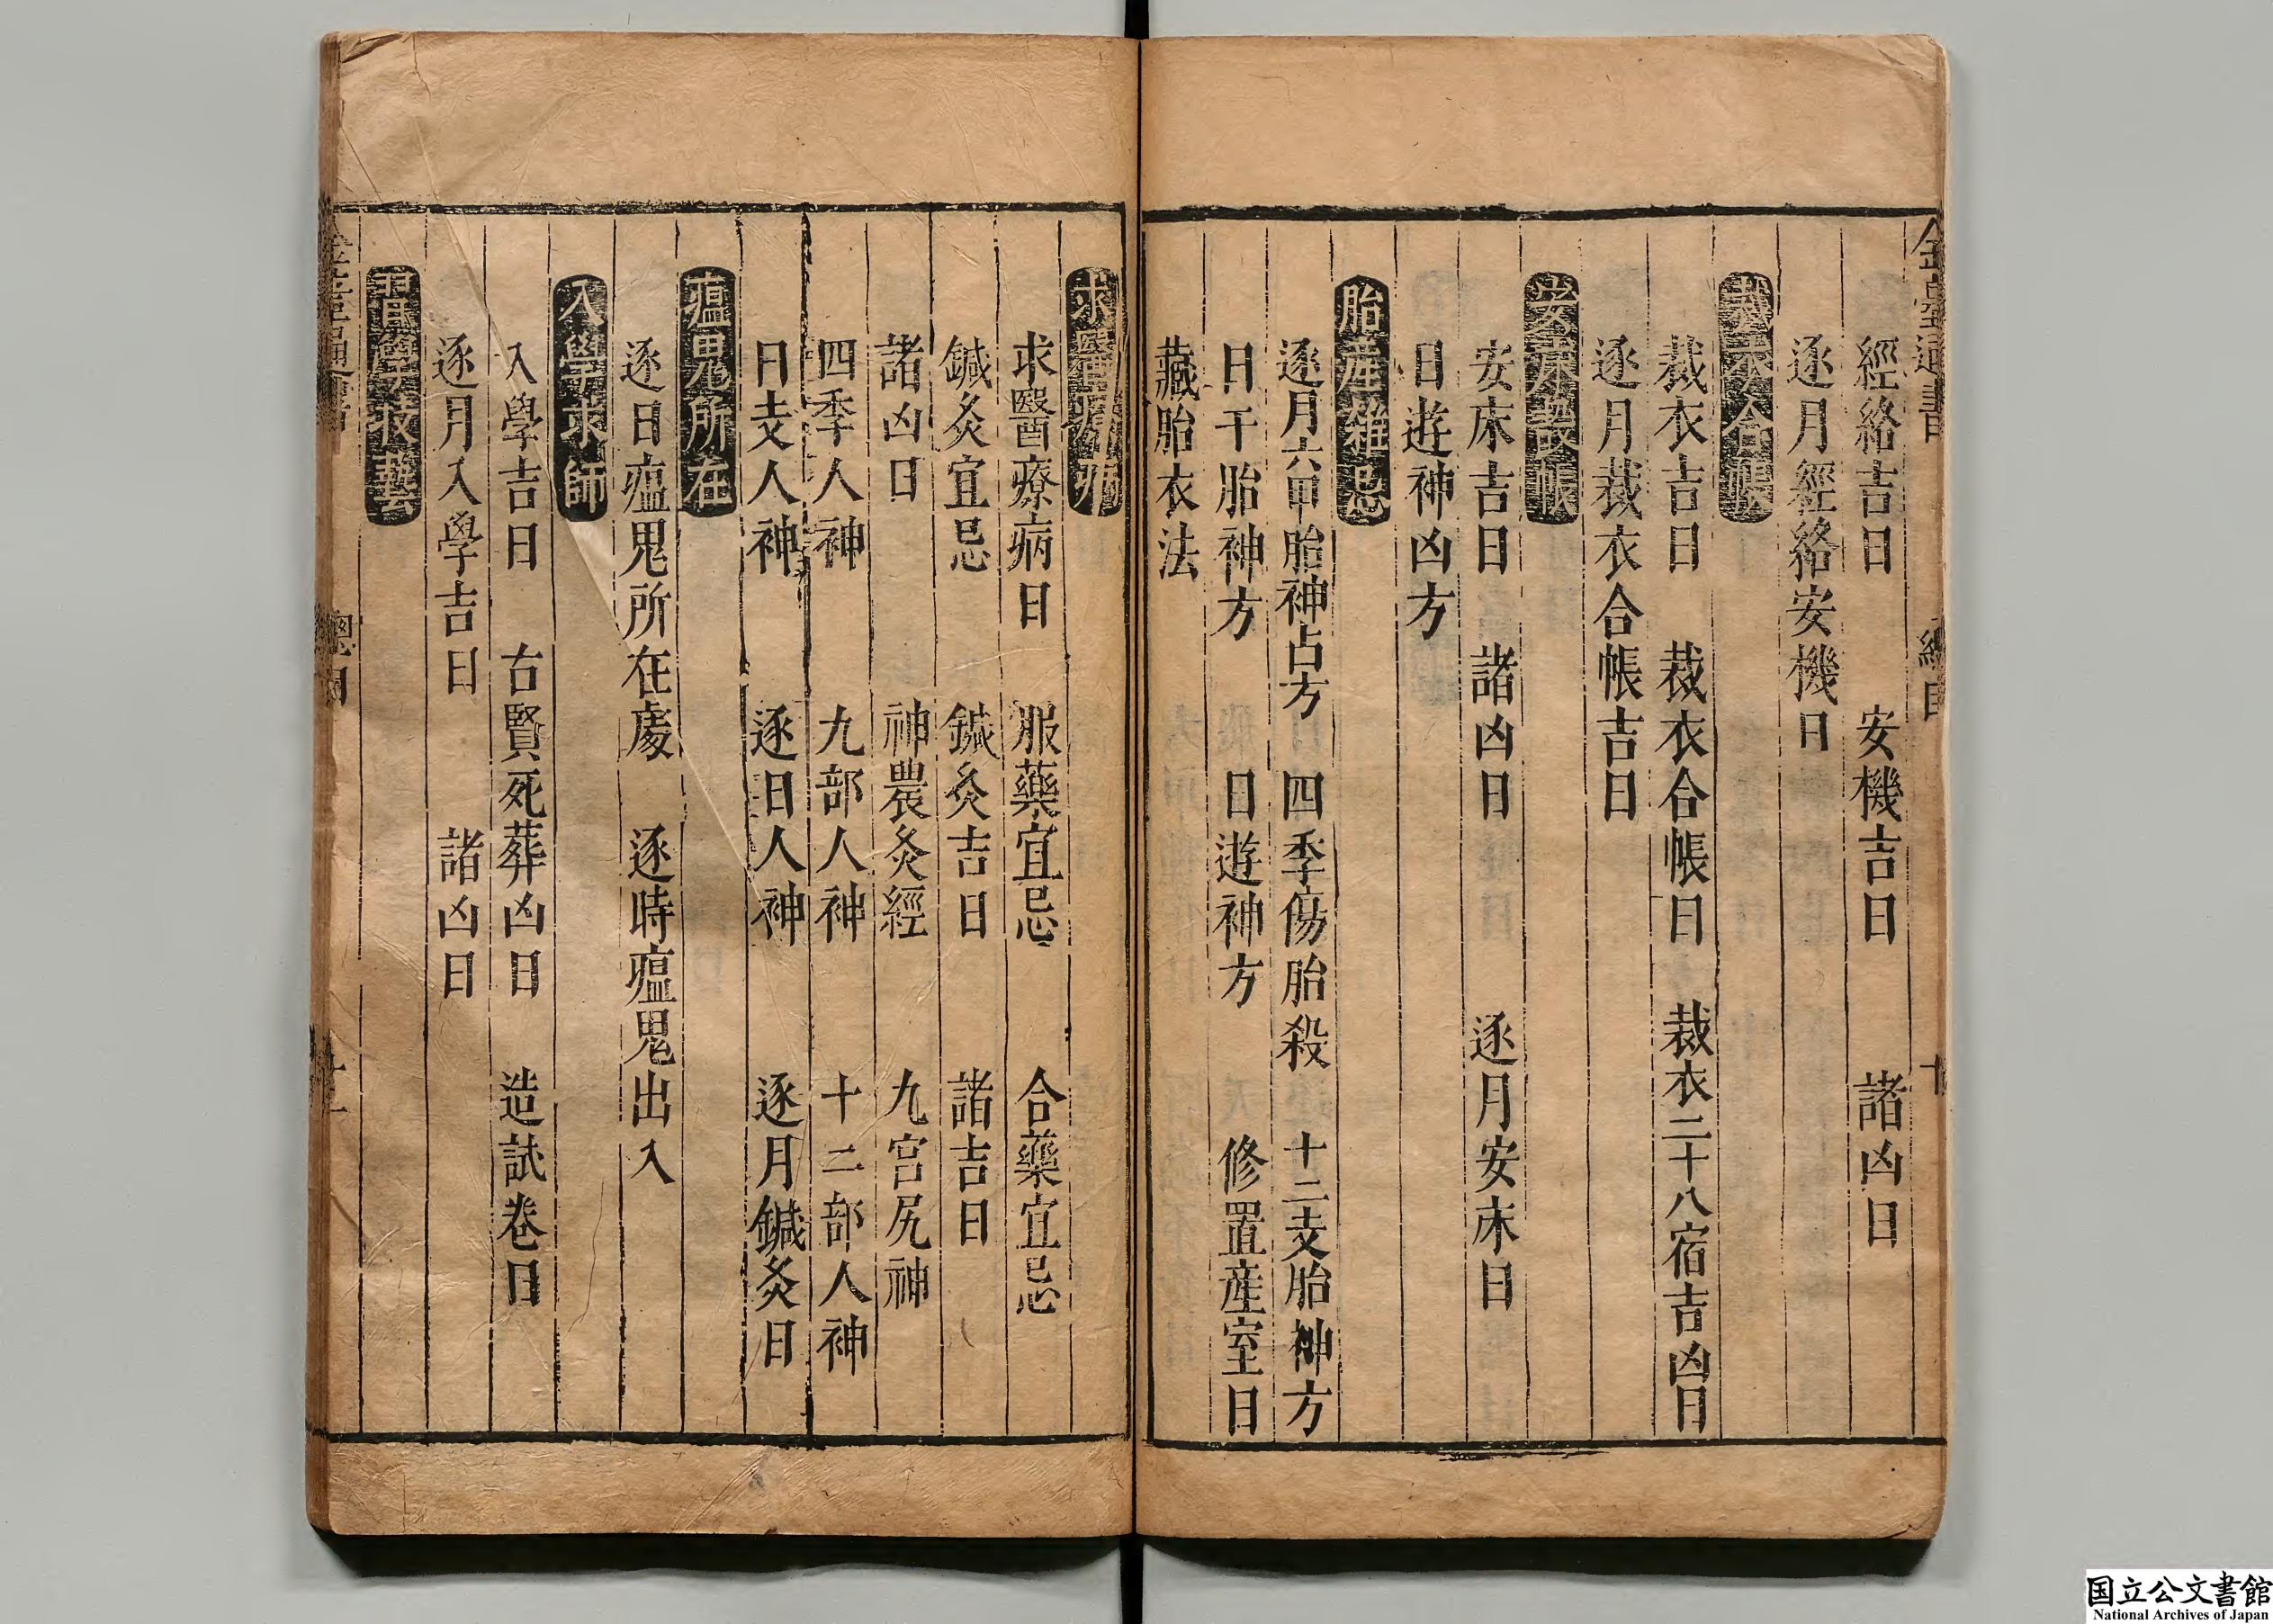 經絡吉日　安機吉日　諸凶日
逐月經絡安機日
裁衣合帳
裁衣吉日　裁衣合帳日　裁衣二十八宿吉凶日
逐月裁衣合帳吉日
安床設帳
安床吉日　諸凶日　逐月安床日
日遊神凶方
胎產雜忌
逐月六甲胎神占方　四季傷胎殺　十二支胎神方
日干胎神方　日遊神方　修置產室日
藏胎衣法
求醫療病
求醫療病日　服藥宜忌　合藥宜忌
鍼灸宜忌　鍼灸吉日　諸吉日
諸凶日　神農灸經　九宮尻神
四季人神　九部人神　十二部人神
日支人神　逐日人神　逐月鍼灸日
瘟鬼所在
逐日瘟鬼所在處　逐時瘟鬼出入
入學求師
入學吉日　古賢死葬凶日　造試卷日
逐月入學吉日　諸凶日
習學技藝
総目
国立公文書館
National Archives of Japan